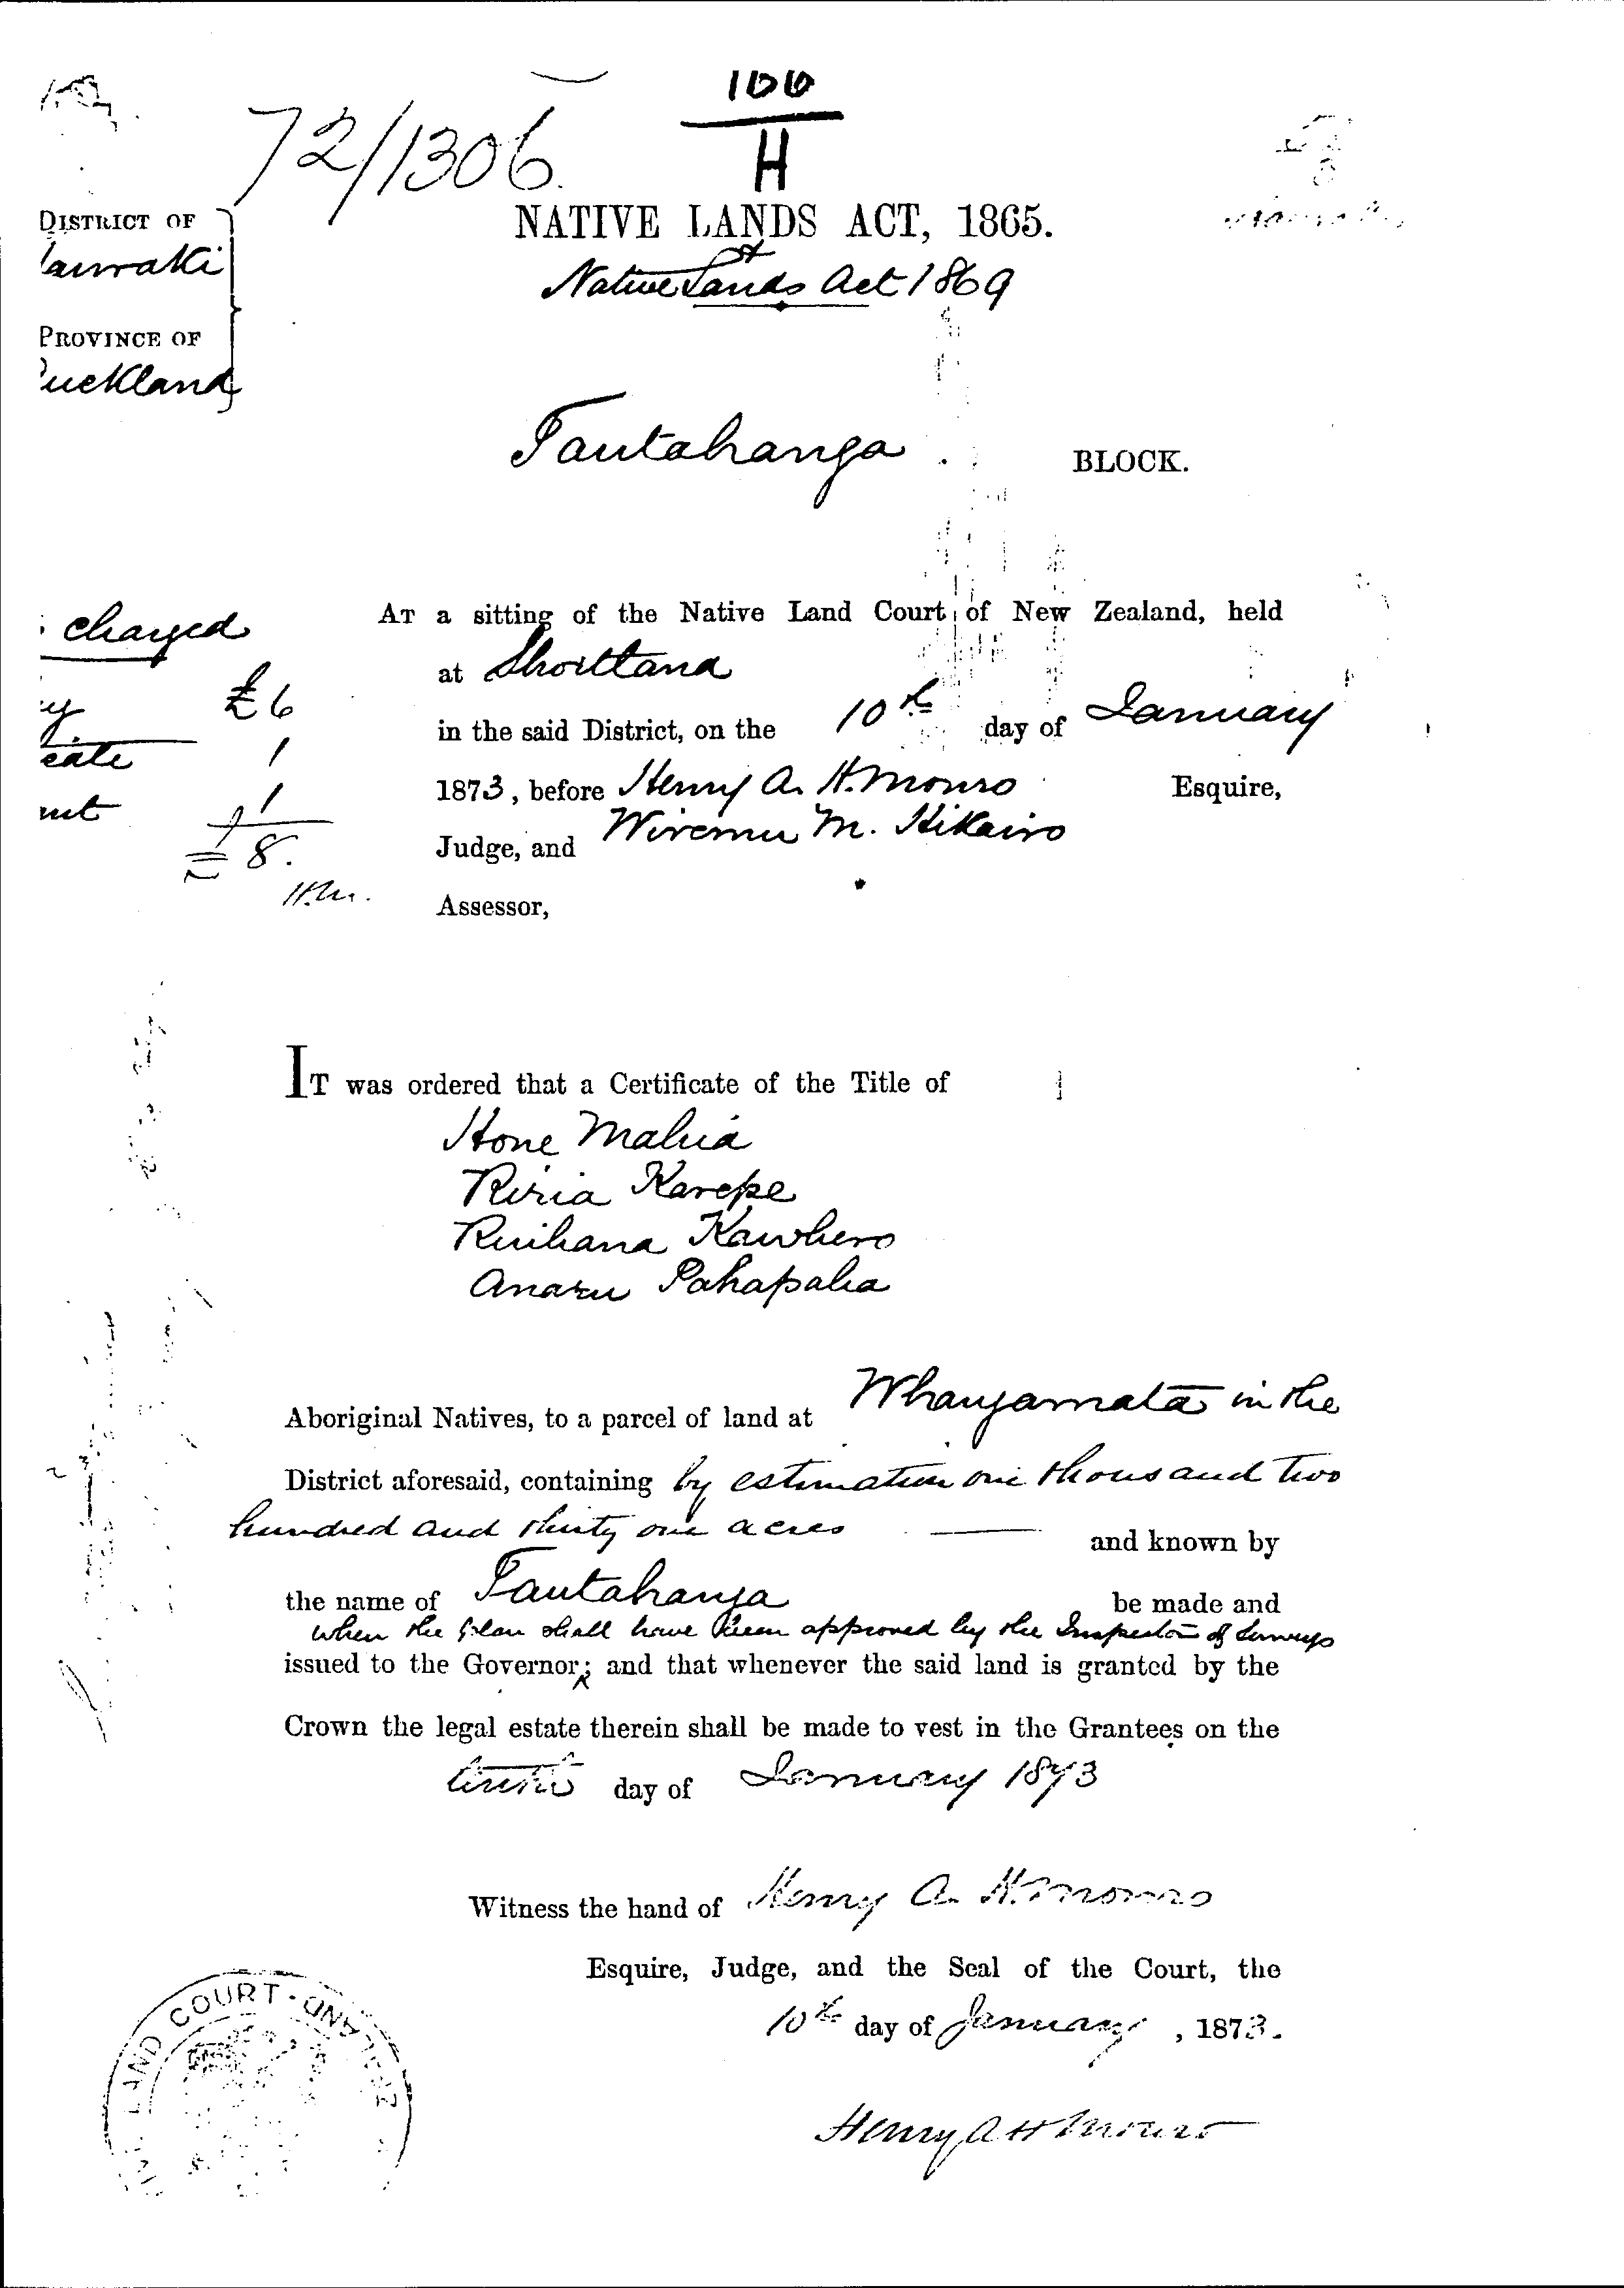 72/1306.
100
H
DISTRICT OF
auraki
PROVINCE OF
uckland
NATIVE LANDS ACT, 1865.
&
Native Lands Act 1869
Tautahanga BLOCK.
charged
y £6
cate 1
nt 1
£8.
H.M.
AT a sitting of the Native Land Court of New Zealand, held
at Shortland
in the said District, on the 10th day of January
1873, before Henry A. H. Monro Esquire,
Judge, and Wiremu M. Hikairo
Assessor,
IT was ordered that a Certificate of the Title of
Hone Mahia
Riria Karepe
Ruihana Kawhero
Anaru Pahapaha
Aboriginal Natives, to a parcel of land at Whangamata in the
District aforesaid, containing by estimation one thousand two
hundred and thirty one acres and known by
the name of Tautahanga be made and
when the plan shall have been approved by the Inspector of Surveys
issued to the Governor; and that whenever the said land is granted by the
Crown the legal estate therein shall be made to vest in the Grantees on the
tenth day of January 1873
Witness the hand of Henry A. H. Monro
Esquire, Judge, and the Seal of the Court, the
10th day of January, 1873.
Henry A H Monro
LAND COURT · ZEALAND